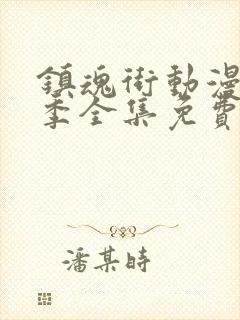 鎮魂街動漫
季全集免費
潘某時